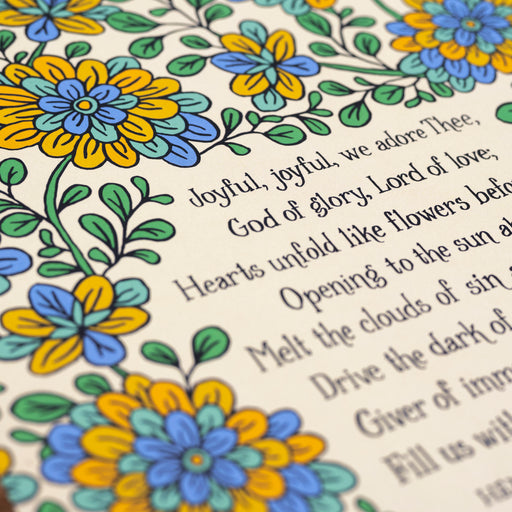 Joyful, joyful, we adore Thee,
God of glory, Lord of love;
Hearts unfold like flowers befo
Opening to the sun a
Melt the clouds of sin
Drive the dark of
Giver of imm
Fill us wit